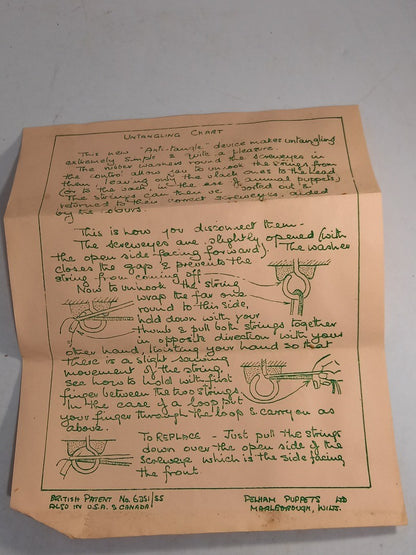 UNTANGLING CHART
This new "Anti-tangle" device makes untangling
extremely simple & quite a pleasure.
The rubber washers round the screweyes in
the control allow you to unhook the strings from
them, leaving only the black ones to the head
(or to the back in the case of animal puppets)
The strings can then be sorted out &
returned to their correct screweyes, aided
by the colours.
This is how you disconnect them-
The screweyes are slightly opened (with
the open side facing forward). The washer
closes the gap & prevents the
string from coming off
Now to unhook the string
wrap the far one
round to this side,
hold down with your
thumb & pull both strings together
in opposite direction with your
other hand, twisting your hand so that
there is a slight sawing
movement of the string,
see how to hold with first
finger between the two strings.
In the case of a loop put
your finger through the loop & carry on as
above.
TO REPLACE - Just pull the strings
down over the open side of the
screweye which is the side facing
the front.
BRITISH PATENT No. 6351/55
ALSO IN U.S.A. & CANADA
PELHAM PUPPETS LTD
MARLBOROUGH, WILTS.